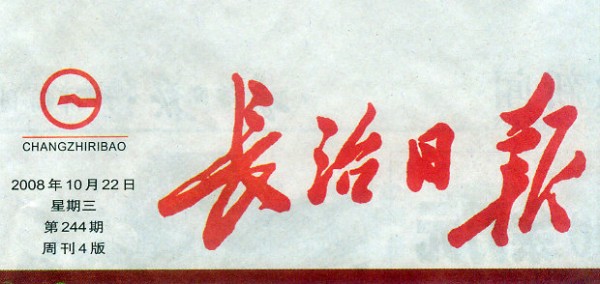 CHANGZHIRIBAO
2008年10月22日
星期三
第244期
周刊4版
长治日报